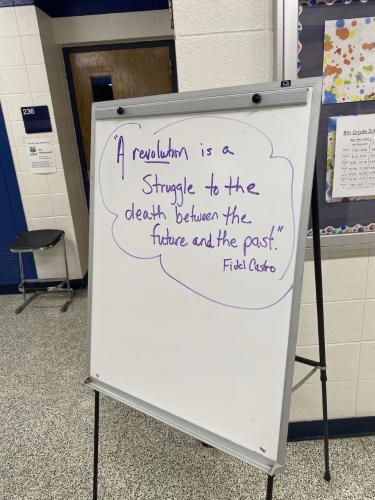 "A revolution is a
Struggle to the
death between the
future and the past."
Fidel Castro
236
8th Grade Sch